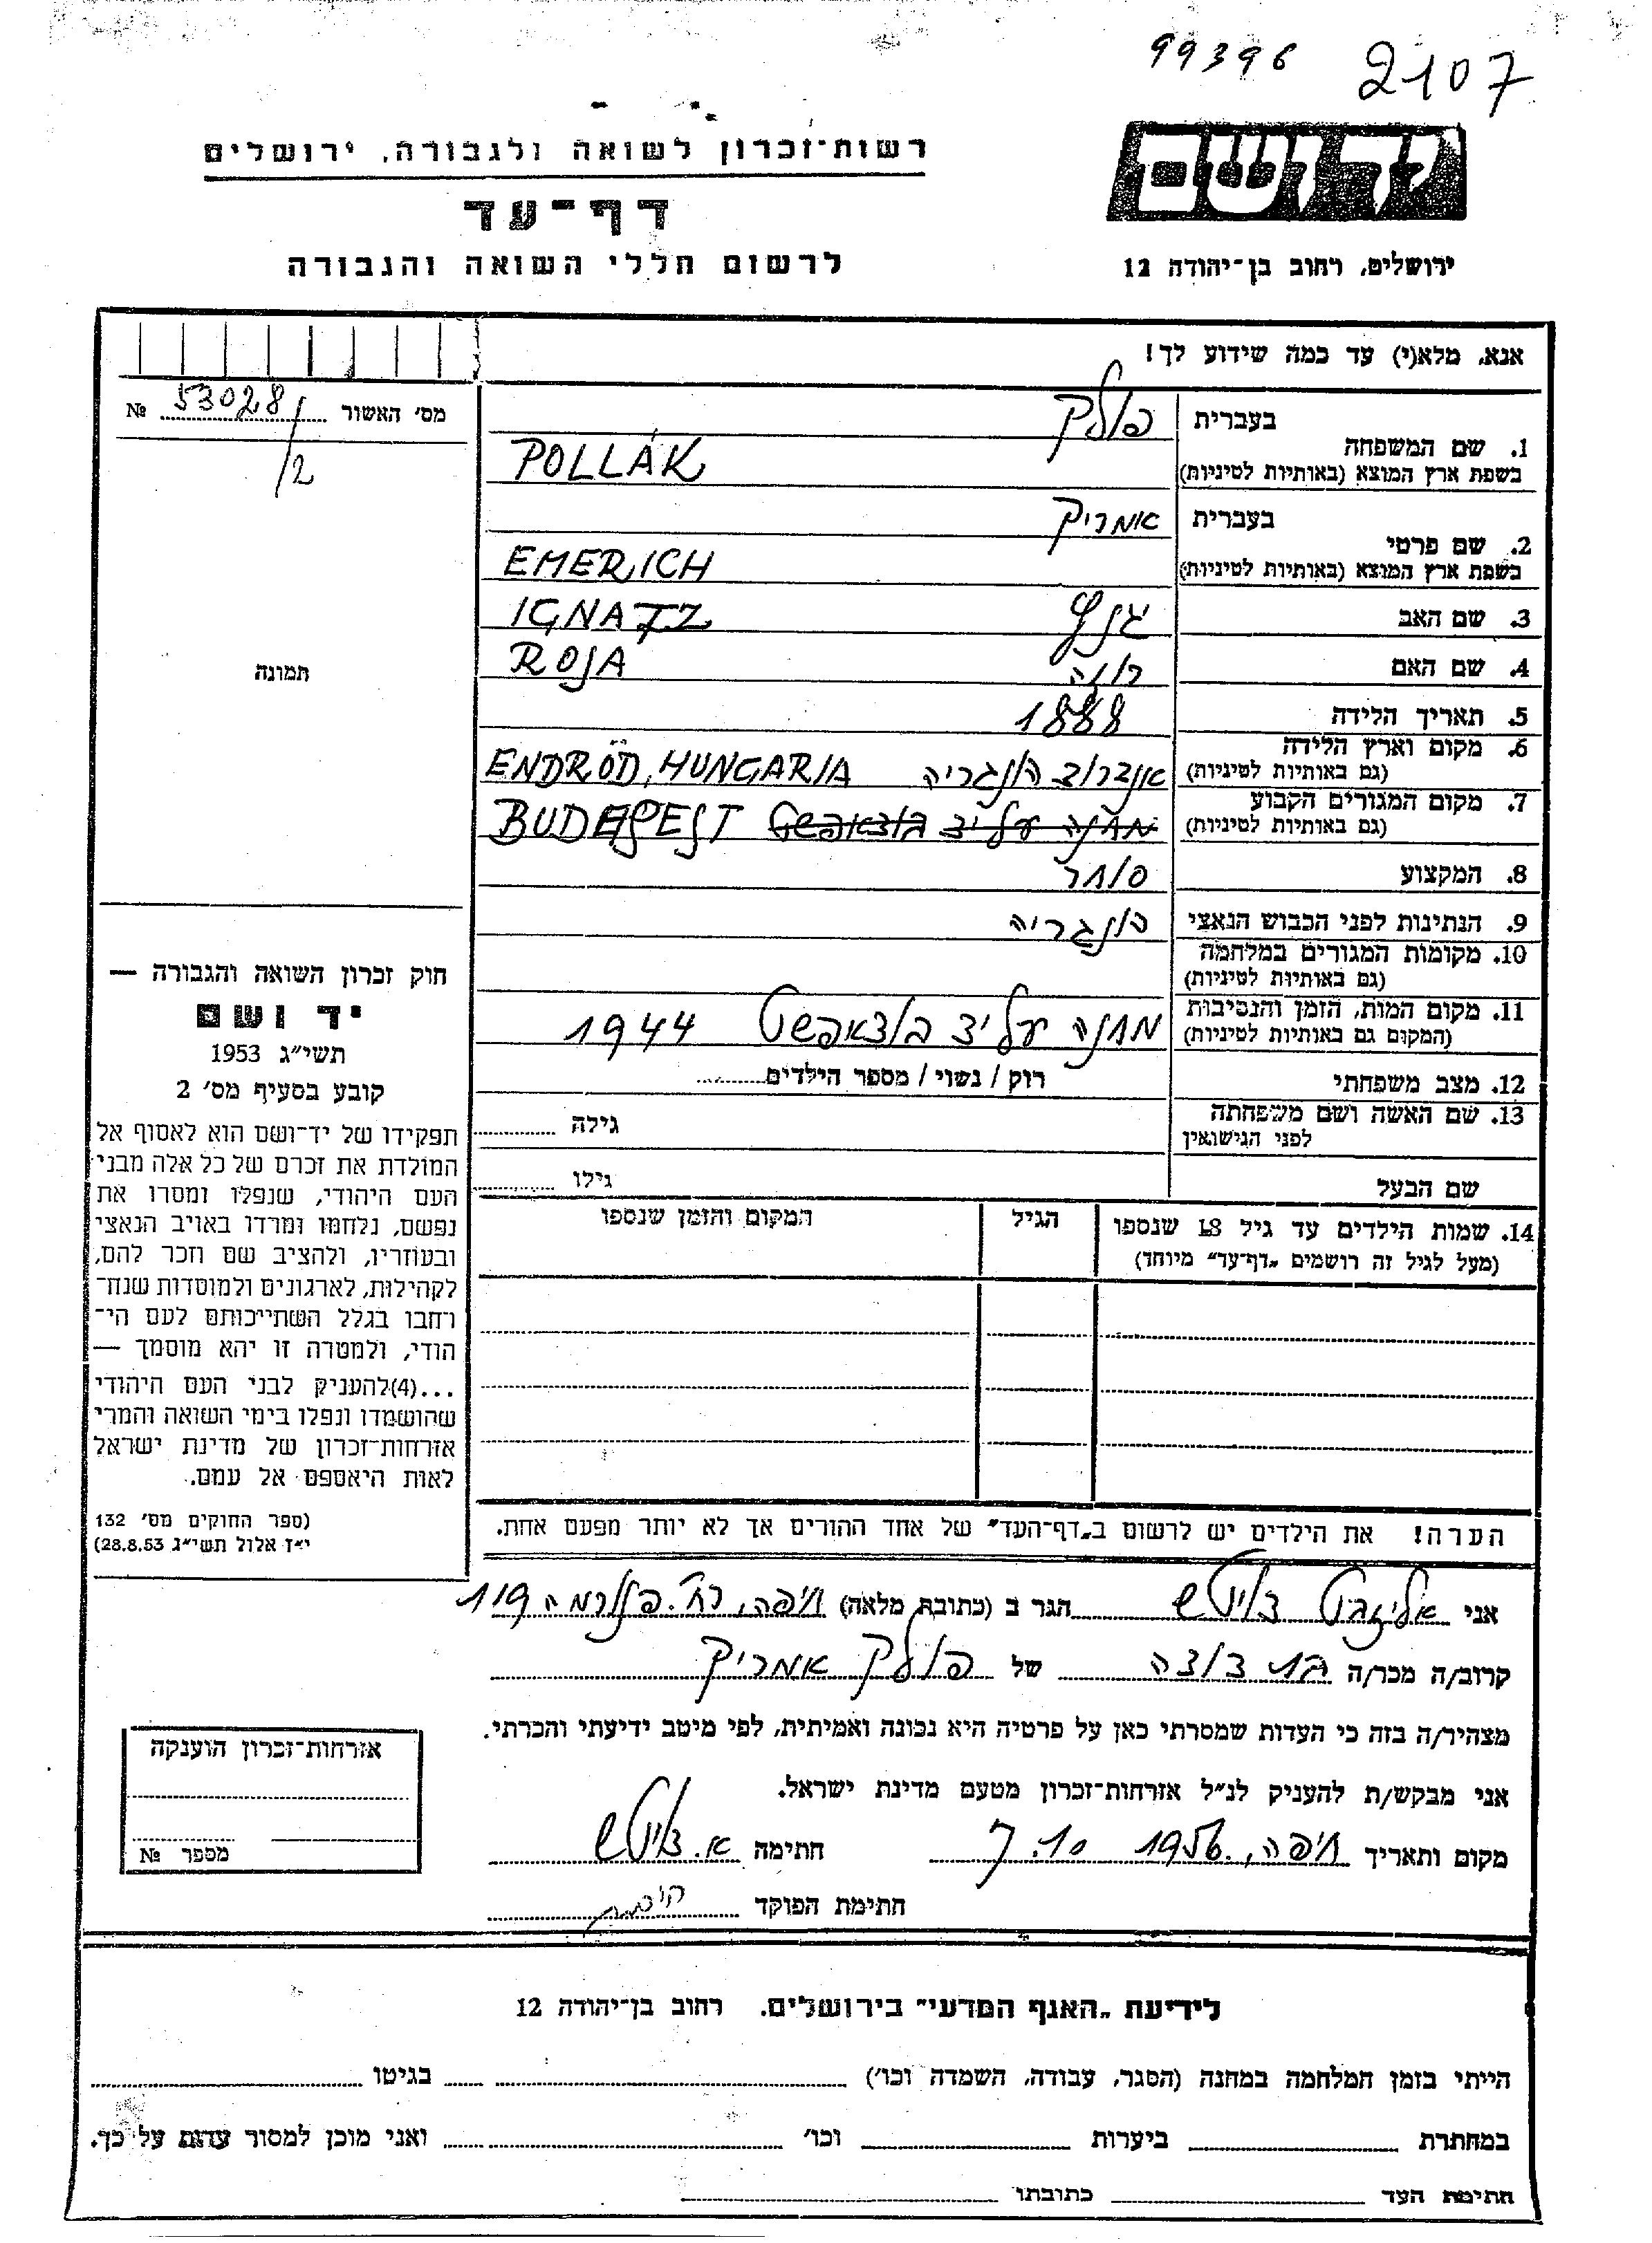 99396 2107
יד ושם
רשות־זכרון לשואה ולגבורה, ירושלים
דף־עד
לרשום חללי השואה והגבורה
ירושלים, רחוב בן־יהודה 12
אנא, מלא(י) עד כמה שידוע לך!
מס׳ האשור 53028/2 №
תמונה
1. שם המשפחה
בעברית פולק
בשפת ארץ המוצא (באותיות לטיניות) POLLÁK
2. שם פרטי
בעברית אמריק
בשפת ארץ המוצא (באותיות לטיניות) EMERICH
3. שם האב IGNATZ
4. שם האם רוזה ROJA
5. תאריך הלידה 1888
6. מקום וארץ הלידה
(גם באותיות לטיניות) אנדרוד הונגריה ENDRÖD, HUNGARIA
7. מקום המגורים הקבוע
(גם באותיות לטיניות) מחנה על יד בודאפשט BUDAPEST
8. המקצוע סוחר
9. הנתינות לפני הכבוש הנאצי הונגריה
10. מקומות המגורים במלחמה
(גם באותיות לטיניות)
11. מקום המות, הזמן והנסיבות
(המקום גם באותיות לטיניות) מחנה על יד בודאפשט 1944
12. מצב משפחתי רוק / נשוי / מספר הילדים
13. שם האשה ושם משפחתה
לפני הנישואין גילה
שם הבעל גילו
14. שמות הילדים עד גיל 18 שנספו
(מעל לגיל זה רושמים „דף־עד״ מיוחד)
הגיל
המקום והזמן שנספו
חוק זכרון השואה והגבורה —
יד ושם
תשי״ג 1953
קובע בסעיף מס׳ 2
תפקידו של יד־ושם הוא לאסוף אל
המולדת את זכרם של כל אלה מבני
העם היהודי, שנפלו ומסרו את
נפשם, נלחמו ומרדו באויב הנאצי
ובעוזריו, ולהציב שם וזכר להם,
לקהילות, לארגונים ולמוסדות שנח־
רחבו בגלל השתייכותם לעם הי־
הודי, ולמטרה זו יהא מוסמך —
...(4)להעניק לבני העם היהודי
שהושמדו ונפלו בימי השואה והמרי
אזרחות־זכרון של מדינת ישראל
לאות היאספם אל עמם.
(ספר החוקים מס׳ 132
י״ז אלול תשי״ג 28.8.53)
הערה! את הילדים יש לרשום ב„דף־העד״ של אחד ההורים אך לא יותר מפעם אחת.
אני אליזבט דויטש הגר ב (כתובת מלאה) חיפה, רח׳ פנורמה 119
קרוב/ה מכר/ה בת דודה של פולק אמריק
מצהיר/ה בזה כי העדות שמסרתי כאן על פרטיה היא נכונה ואמיתית, לפי מיטב ידיעתי והכרתי.
אני מבקש/ת להעניק לנ״ל אזרחות־זכרון מטעם מדינת ישראל.
מקום ותאריך חיפה, 7.10.1956 חתימה א. דויטש
חתימת הפוקד
אזרחות־זכרון הוענקה
מספר №
לידיעת „האגף המדעי״ בירושלים. רחוב בן־יהודה 12
הייתי בזמן המלחמה במחנה (הסגר, עבודה, השמדה וכו׳) בגיטו
במחתרת ביערות וכו׳ ואני מוכן למסור עדות על כך.
חתימת העד כתובתו